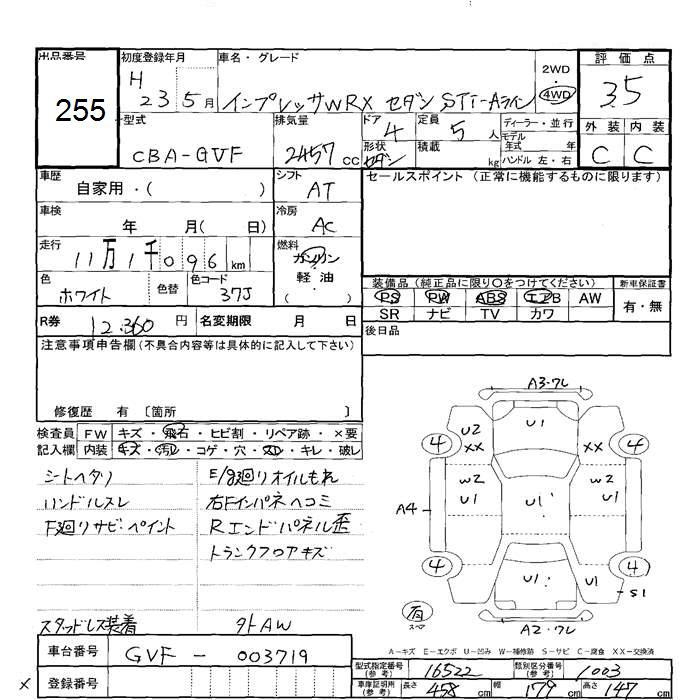 出品番号 初度登録年月 車名・グレード 評価点
255
H 23 5月 インプレッサWRX セダン STI-Aライン
2WD・4WD
3.5
型式 排気量 ドア 4 定員 5人 ディーラー・並行
CBA-GVF 2457cc 形状 セダン 積載 kg
モデル年式 年
ハンドル 左・右
外装 内装
C C
車歴 自家用・( )
シフト AT
セールスポイント (正常に機能するものに限ります)
車検 年 月( 日)
冷房 AC
走行 11万1千096km
燃料 ガソリン・軽油・( )
色 ホワイト 色替 色コード 37J
装備品(純正品に限り○をつけてください) 新車保証書
PS PW ABS エアB AW 有・無
SR ナビ TV カワ
R券 12.360円 名変期限 月 日
後日品
注意事項申告欄(不具合内容等は具体的に記入して下さい)
修復歴 有〔箇所 〕
検査員記入欄 FW キズ・飛石・ヒビ割・リペア跡・×要
内装 キズ・汚れ・コゲ・穴・スレ・キレ・破レ
シートヘタリ E/g廻りオイルもれ
ハンドルスレ 右Fインパネヘコミ
F廻りサビ・ペイント Rエンドパネル歪
トランクフロアキズ
スタッドレス装着 外AW
A3・ワレ
U2 XX U1 XX
4 4
W2 U1 U1 W2 U1
A4
4 4
U1 U1 S1
有 スペア
A2・ワレ
A-キズ E-エクボ U-凹み W-補修跡 S-サビ C-腐食 XX-交換済
車台番号 GVF-003719
× 登録番号
型式指定番号(参考) 16522 類別区分番号(参考) 1003
車庫証明用(参考) 長さ 458cm 幅 179cm 高さ 147cm